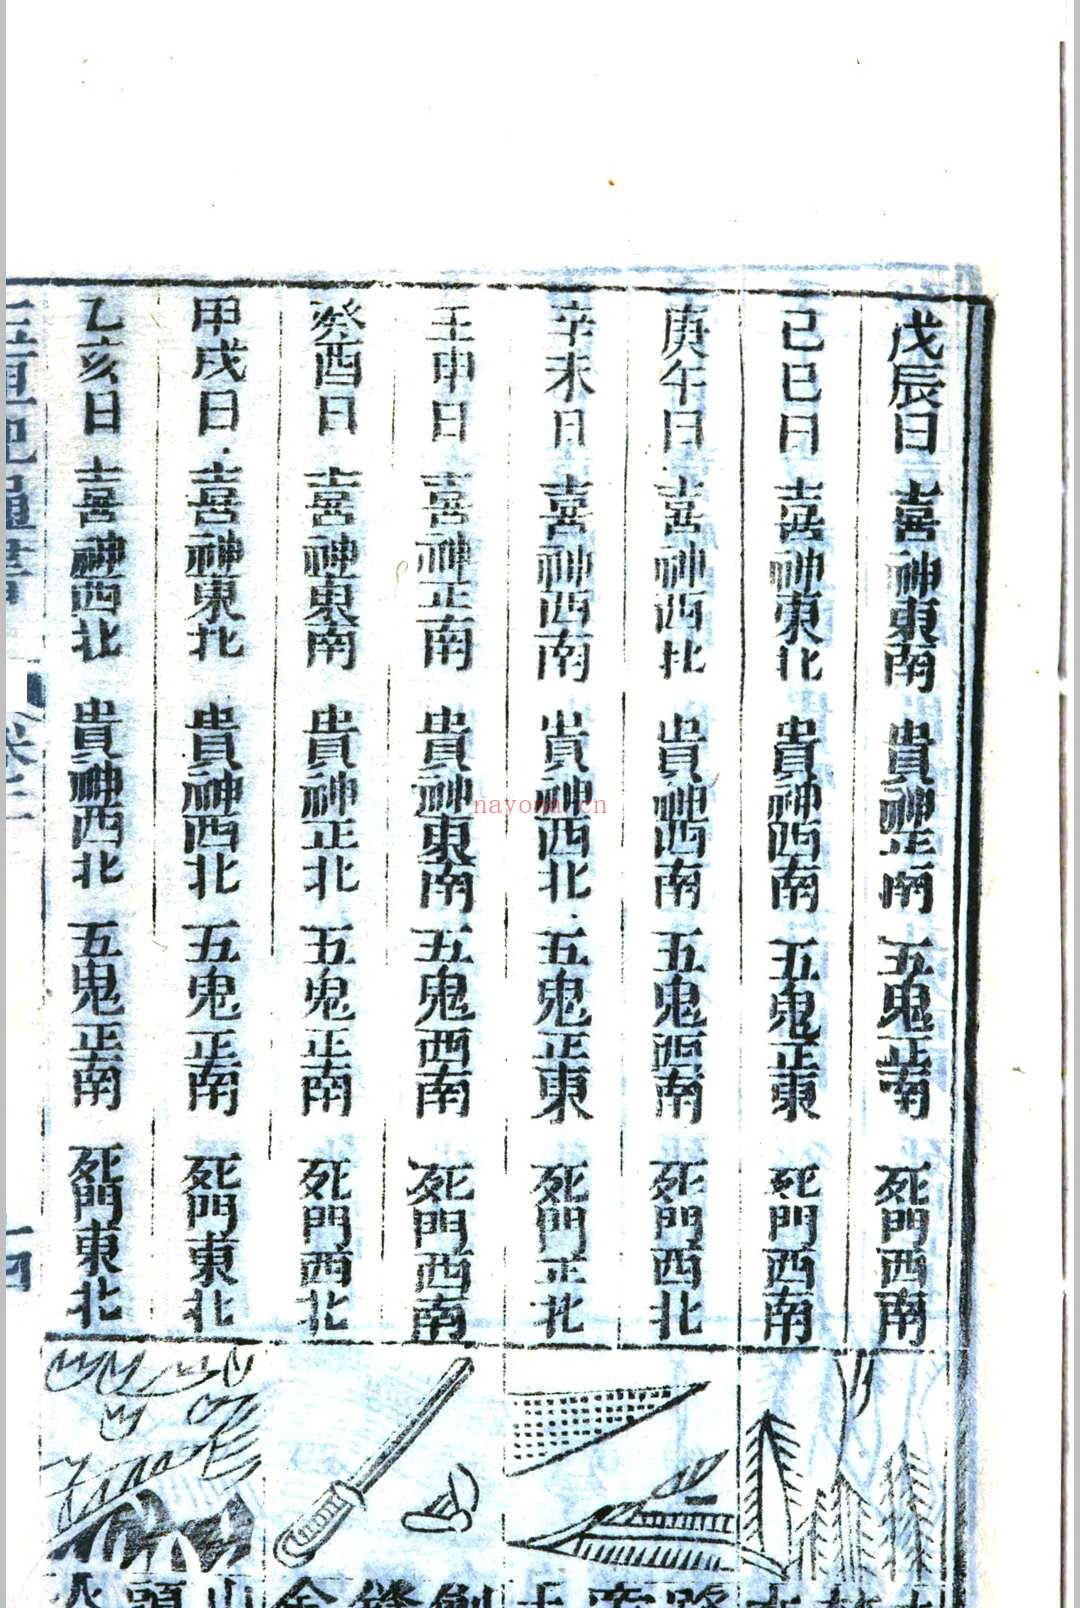 戊辰日 喜神東南 貴神正南 五鬼正南 死門西南
己巳日 喜神東北 貴神西南 五鬼正東 死門西南
庚午日 喜神西北 貴神西南 五鬼西南 死門西北
辛未日 喜神西南 貴神西北 五鬼正東 死門正北
壬申日 喜神正南 貴神東南 五鬼西南 死門西南
癸酉日 喜神東南 貴神正北 五鬼正南 死門西北
甲戌日 喜神東北 貴神西北 五鬼正南 死門東北
乙亥日 喜神西北 貴神西北 五鬼正南 死門東北
路旁土
劍鋒金
山頭火
nayona.cn